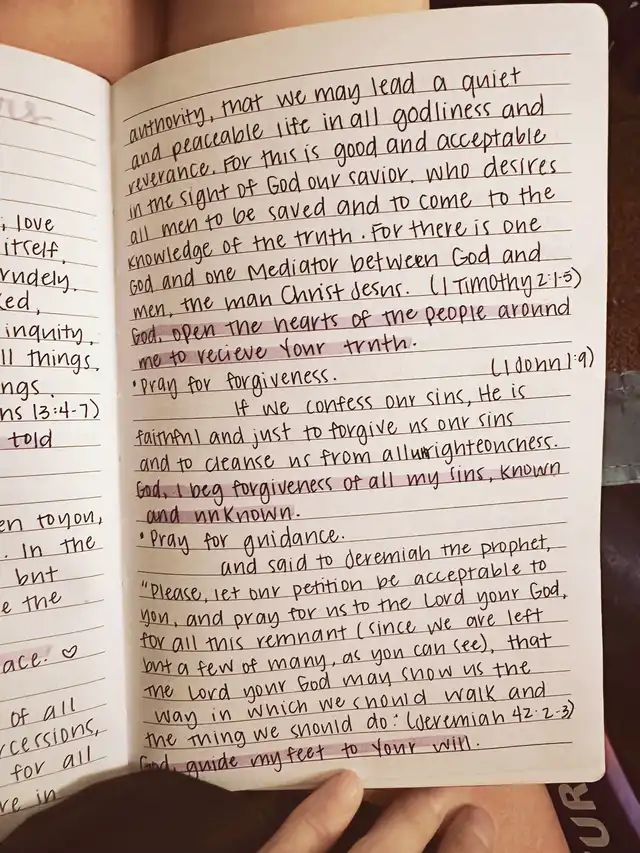 , love
itself,
rudely,
ked,
inquity,
ll things,
ngs.
ns 13:4-7)
told
en to you,
. In the
but
e the
ace. ♡
of all
rcessions,
for all
re in
authority, that we may lead a quiet
and peaceable life in all godliness and
reverance. For this is good and acceptable
in the sight of God our savior, who desires
all men to be saved and to come to the
knowledge of the truth. For there is one
God and one Mediator between God and
men, the man Christ Jesus. (1 Timothy 2:1-5)
God, open the hearts of the people around
me to recieve Your truth.
• Pray for forgiveness. (1 John 1:9)
If we confess our sins, He is
faithful and just to forgive us our sins
and to cleanse us from all unrighteousness.
God, I beg forgiveness of all my sins, known
and unknown.
• Pray for guidance.
and said to Jeremiah the prophet,
"Please, let our petition be acceptable to
you, and pray for us to the Lord your God,
for all this remnant (since we are left
but a few of many, as you can see), that
the Lord your God may show us the
way in which we should walk and
the thing we should do." (Jeremiah 42:2-3)
God, guide my feet to Your will.
UR